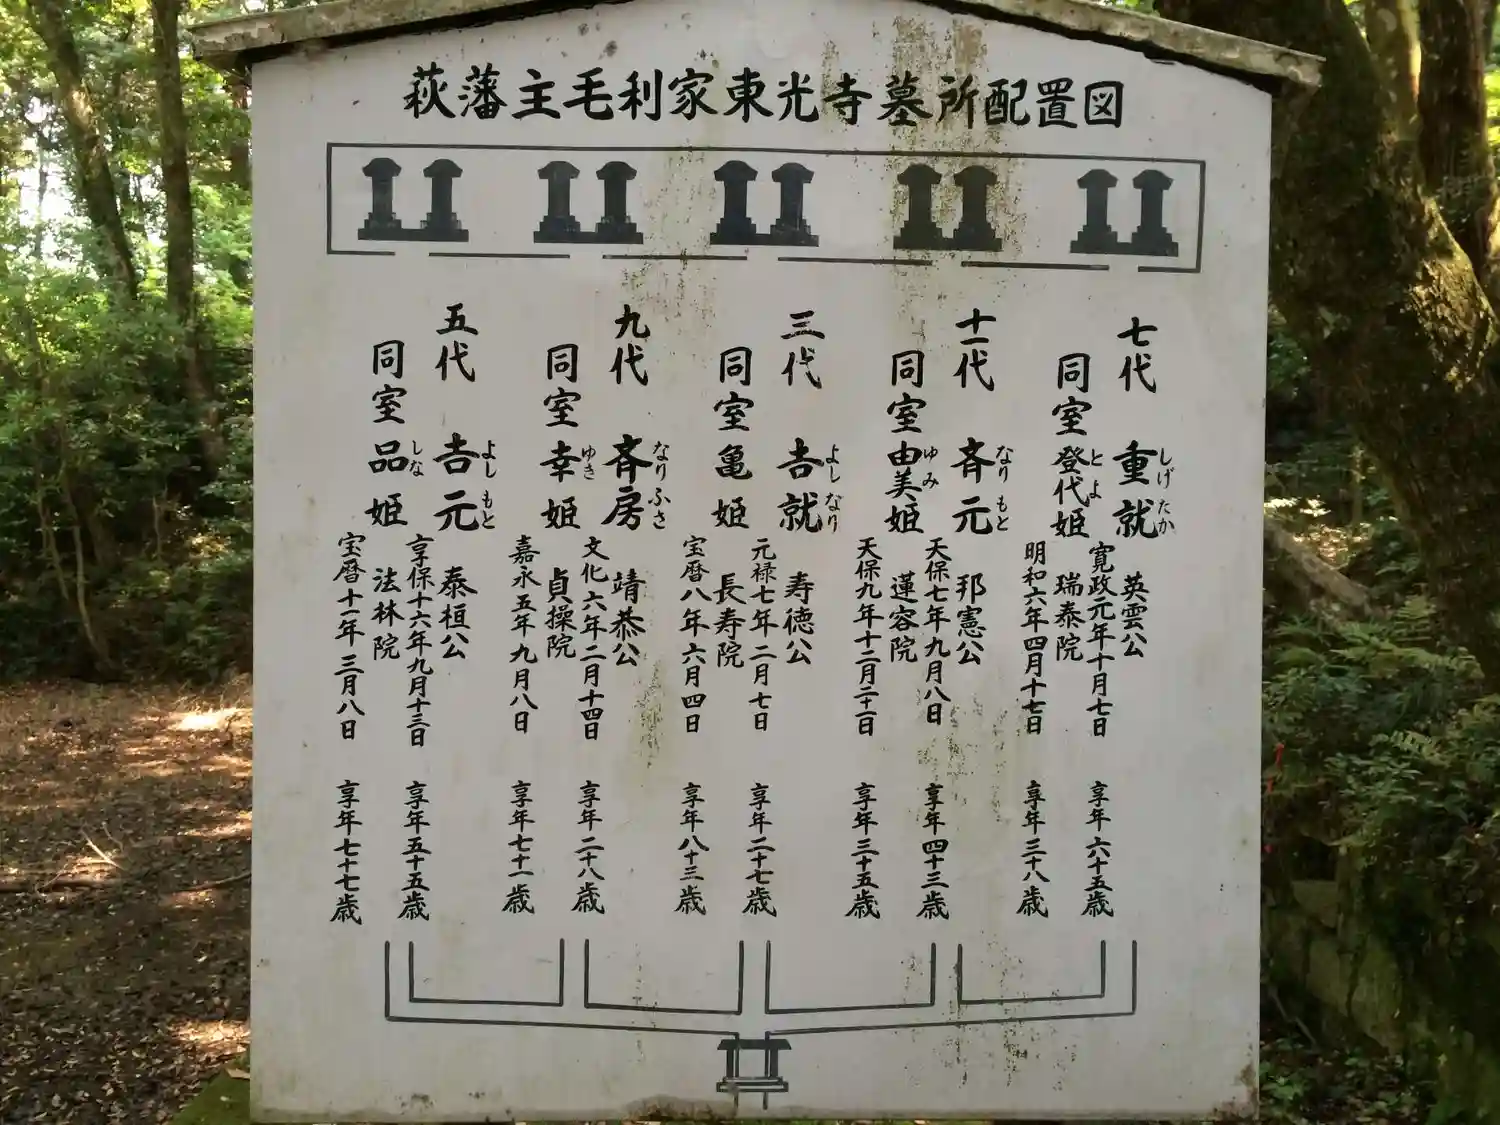 萩藩主毛利家東光寺墓所配置図
七代 重就 しげたか 英雲公
寛政元年十月七日 享年六十五歳
同室 登代姫 とよ 瑞泰院
明和六年四月十七日 享年三十八歳
十一代 斉元 なりもと 邦憲公
天保七年九月八日 享年四十三歳
同室 由美姫 ゆみ 蓮容院
天保九年十二月二十一日 享年三十五歳
三代 吉就 よしなり 寿徳公
元禄七年二月七日 享年二十七歳
同室 亀姫 長寿院
宝暦八年六月四日 享年八十三歳
九代 斉房 なりふさ 靖恭公
文化六年二月十四日 享年二十八歳
同室 幸姫 ゆき 貞操院
嘉永五年九月八日 享年七十一歳
五代 吉元 よしもと 泰桓公
享保十六年九月十三日 享年五十五歳
同室 品姫 しな 法林院
宝暦十一年三月八日 享年七十七歳